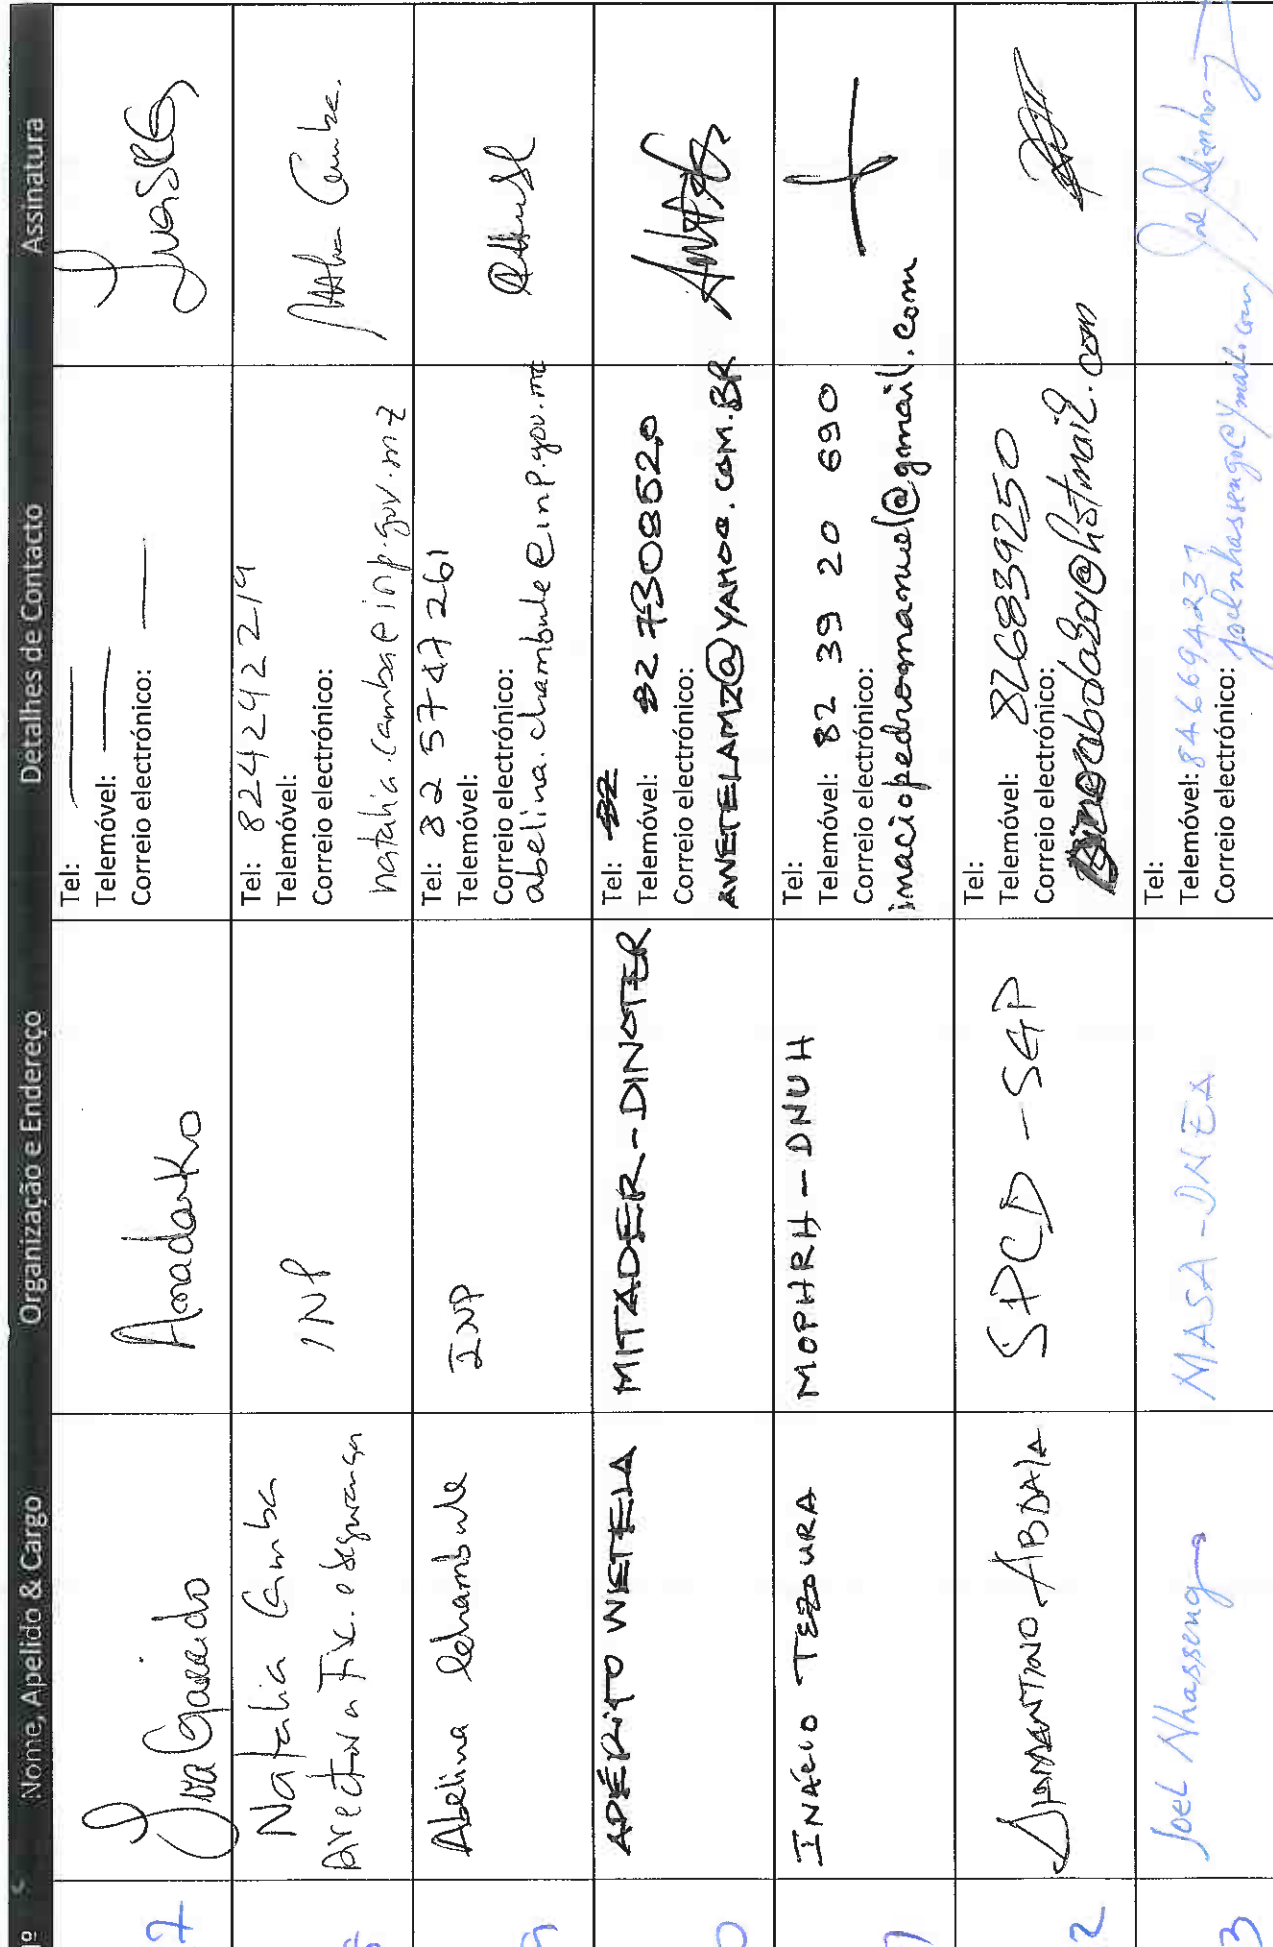 Nome, Apelido & Cargo Organização e Endereço Detalhes de Contacto Assinatura
7 Iva Garrido Anadarko
Tel: —
Telemóvel: —
Correio electrónico: —
Natalia Camba
Directora Fix. e Segurança
INP
Tel: 824242219
Telemóvel:
Correio electrónico:
natalia.camba@inp.gov.mz
Natalia Camba.
9 Abelina Chambule INP
Tel: 82 5747261
Telemóvel:
Correio electrónico:
abelina.chambule@inp.gov.mz
0 APÉRITO WETELA MITADER-DINOTER
Tel: 82
Telemóvel: 827308520
Correio electrónico:
AWETELAMZ@YAHOO.COM.BR
INÁCIO TEZOURA MOPHRH-DNUH
Tel:
Telemóvel: 82 39 20 690
Correio electrónico:
inaciopedromanuel@gmail.com
2 DIAMANTINO ABDALA SPCD - SGP
Tel:
Telemóvel: 826839250
Correio electrónico:
@hotmail.com
3 Joel Nhassengo MASA-DNEA
Tel:
Telemóvel: 846694237
Correio electrónico: joelnhassengo@ymail.com